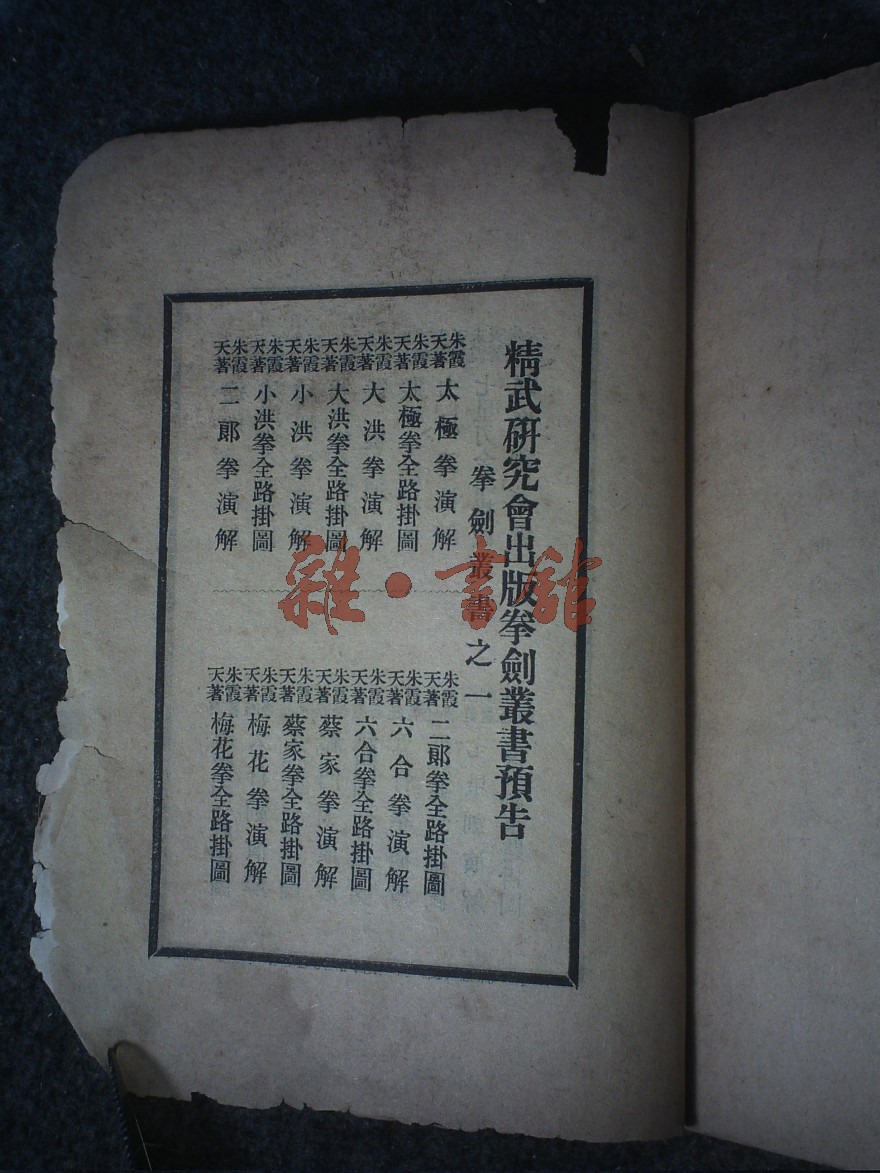 精武硏究會出版拳劍叢書預告
拳劍叢書之一
朱霞天著 太極拳演解
朱霞天著 太極拳全路掛圖
朱霞天著 大洪拳演解
朱霞天著 大洪拳全路掛圖
朱霞天著 小洪拳演解
朱霞天著 小洪拳全路掛圖
朱霞天著 二郎拳演解
朱霞天著 二郎拳全路掛圖
朱霞天著 六合拳演解
朱霞天著 六合拳全路掛圖
朱霞天著 蔡家拳演解
朱霞天著 蔡家拳全路掛圖
朱霞天著 梅花拳演解
朱霞天著 梅花拳全路掛圖
雜·書館